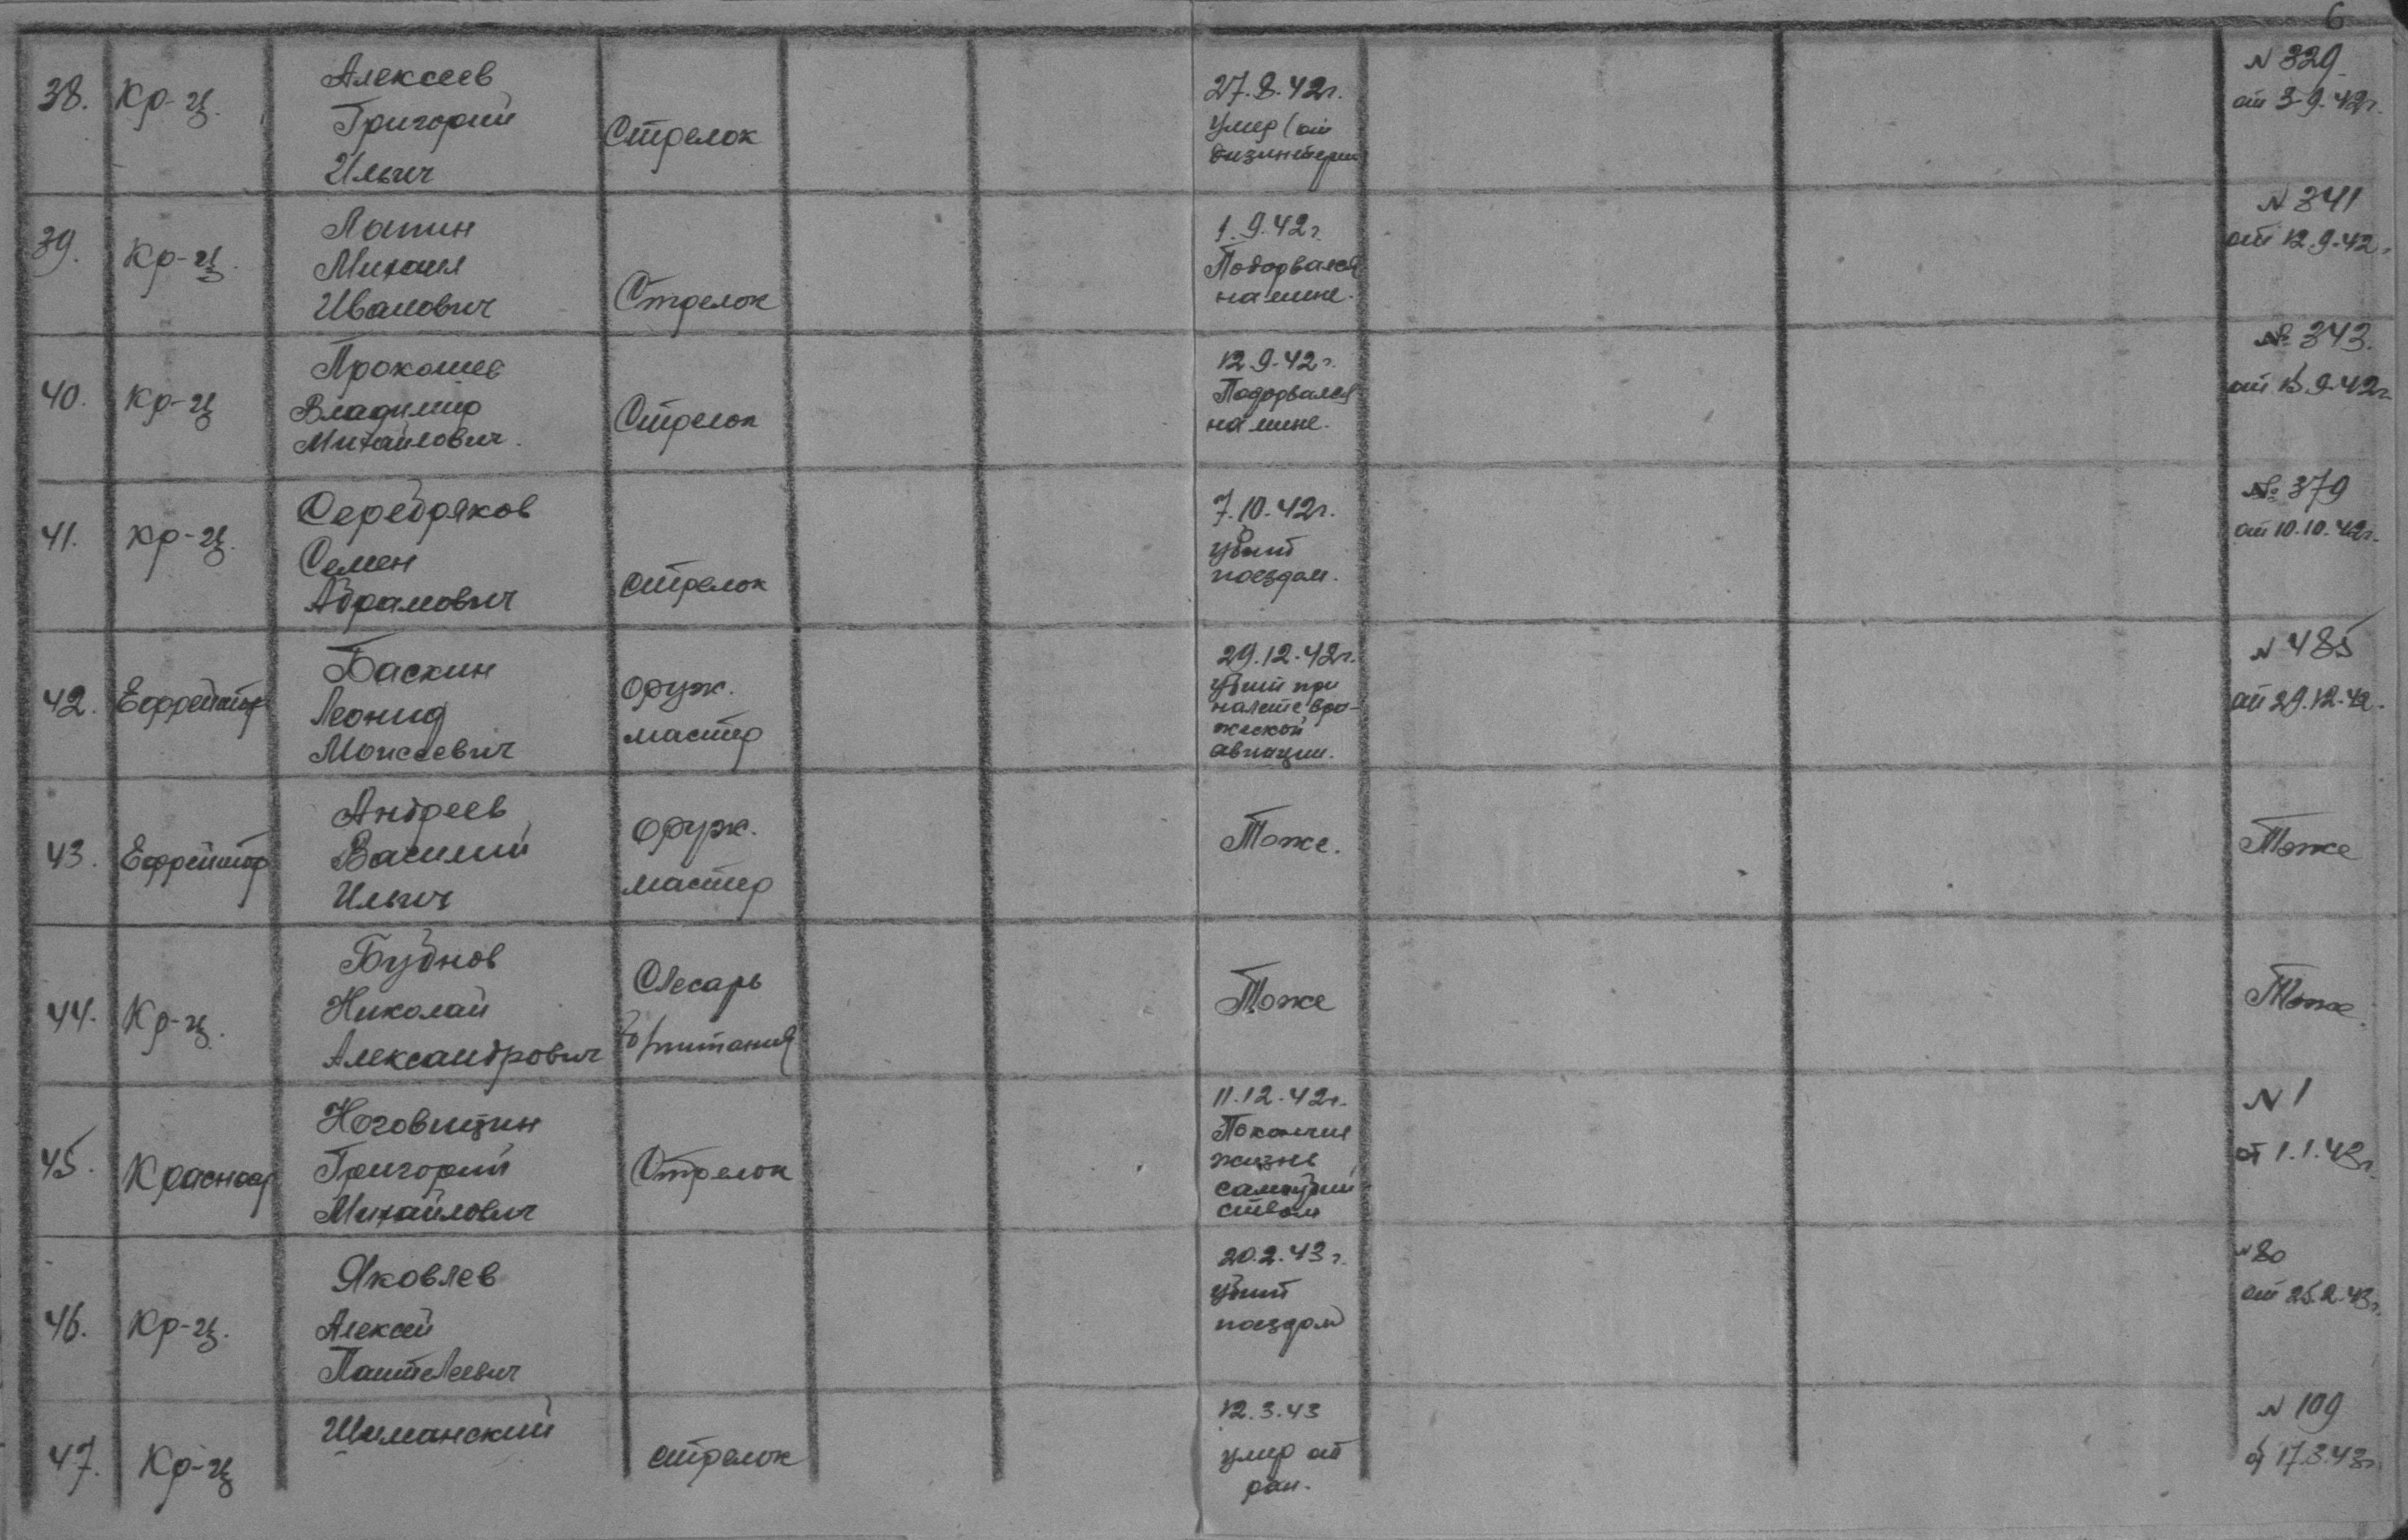 6
38. Кр-ц. Алексеев Григорий Ильич Стрелок 27.8.42г. умер (от дизинтерии N 329 от 3.9.42г.
39. Кр-ц. Лапин Михаил Иванович Стрелок 1.9.42г. Подорвался на мине. N 341 от 12.9.42.
40. Кр-ц Прокошев Владимир Михайлович. Стрелок 12.9.42г. Подорвался на мине. № 343. от 9.42г.
41. Кр-ц. Серебряков Семен Абрамович стрелок 7.10.42г. убит поездом. № 379 от 10.10.42г.
42. Ефрейтор Баскин Леонид Моисеевич оруж. мастер 29.12.42г. убит при налете вра-жеской авиации. N 485 от 29.12.42.
43. Ефрейтор Андреев Василий Ильич оруж. мастер Тоже. Тоже
44. Кр-ц. Бубнов Николай Александрович Слесарь Эл/питания Тоже Тоже.
45. Красноар Ноговицин Григорий Михайлович Стрелок 11.12.42г. Покончил жизнь самоубий ством N 1 от 1.1.43г.
46. Кр-ц. Яковлев Алексей Пантелеевич 20.2.43г. убит поездом N 80 от 25.2.43г.
47. Кр-ц Шиманский стрелок 12.3.43 умер от ран. N 109 от 17.3.43г.